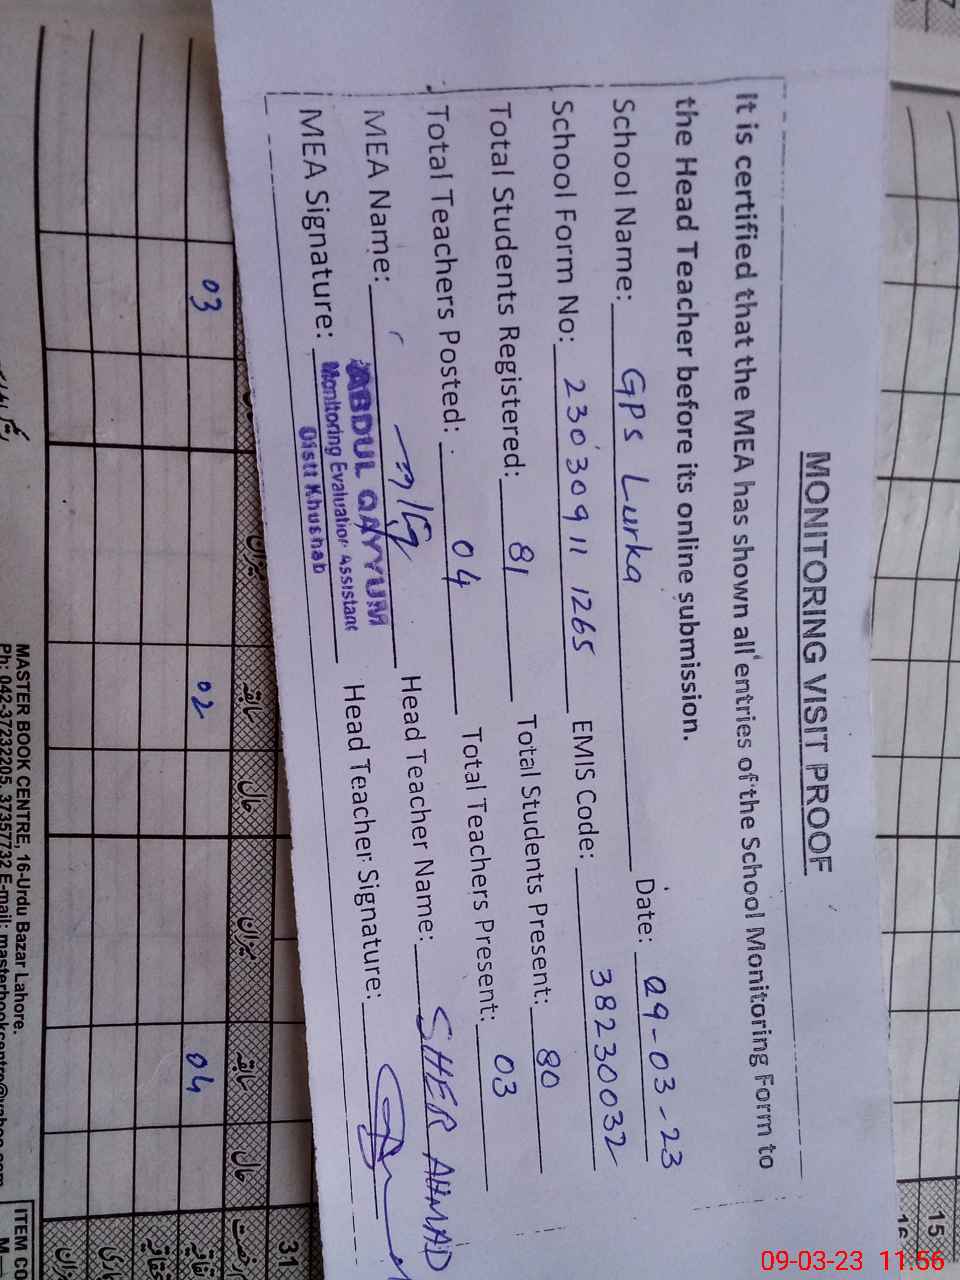 MONITORING VISIT PROOF
It is certified that the MEA has shown all entries of the School Monitoring Form to
the Head Teacher before its online submission.
School Name: GPS Lurka Date: 09-03-23
School Form No: 230309111265 EMIS Code: 38230032
Total Students Registered: 81 Total Students Present: 80
Total Teachers Posted: 04 Total Teachers Present: 03
MEA Name: Head Teacher Name: SHER AHMAD
ABDUL QAYYUM
MEA Signature: Head Teacher Signature:
Monitoring Evaluation Assistant
Distt Khushab
15
16
31
سابقہ حال میزان سابقہ حال
03 02 04
میزان
MASTER BOOK CENTRE, 16-Urdu Bazar Lahore.
Ph: 042-37232205, 37357732 E-mail:
ITEM CO
09-03-23 11:56